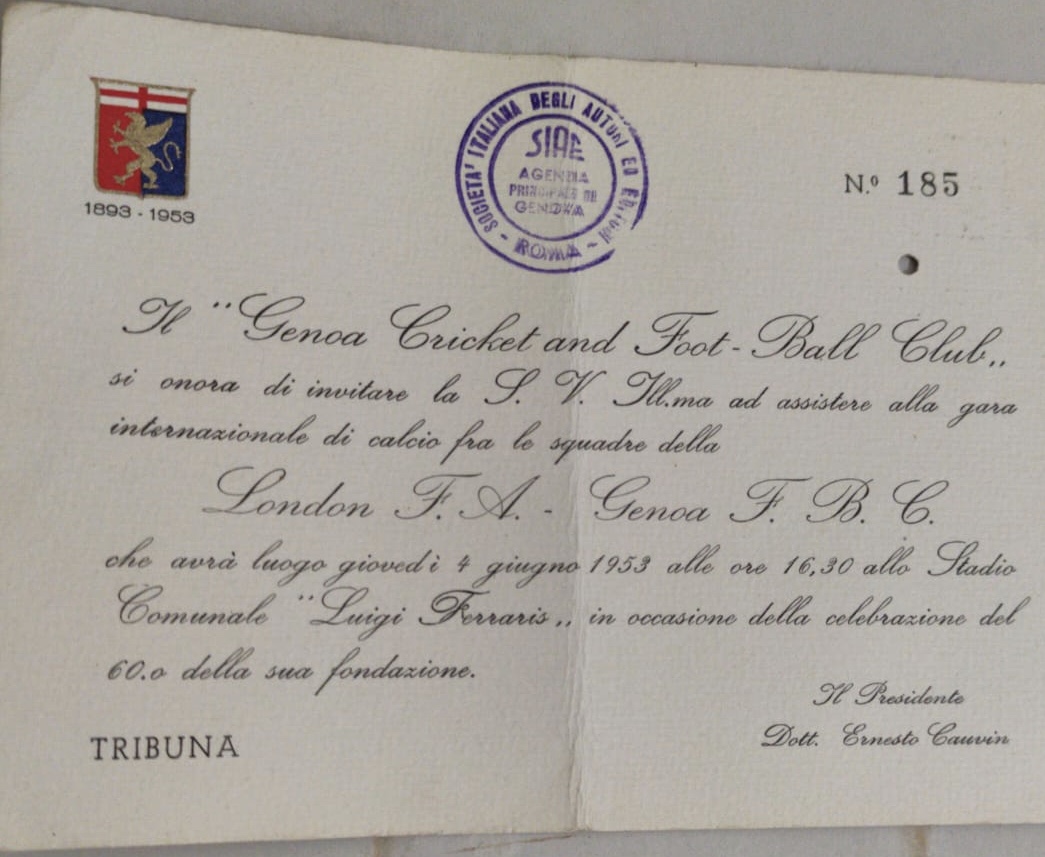 1893 - 1953
SOCIETA' ITALIANA DEGLI AUTORI ED EDITORI - ROMA -
SIAE
AGENZIA
PRINCIPALE DI
GENOVA
N.º 185
Il "Genoa Cricket and Foot-Ball Club„
si onora di invitare la S. V. Ill.ma ad assistere alla gara
internazionale di calcio fra le squadre della
London F. A. - Genoa F. B. C.
che avrà luogo giovedì 4 giugno 1953 alle ore 16,30 allo Stadio
Comunale "Luigi Ferraris„ in occasione della celebrazione del
60.o della sua fondazione.
Il Presidente
Dott. Ernesto Cauvin
TRIBUNA